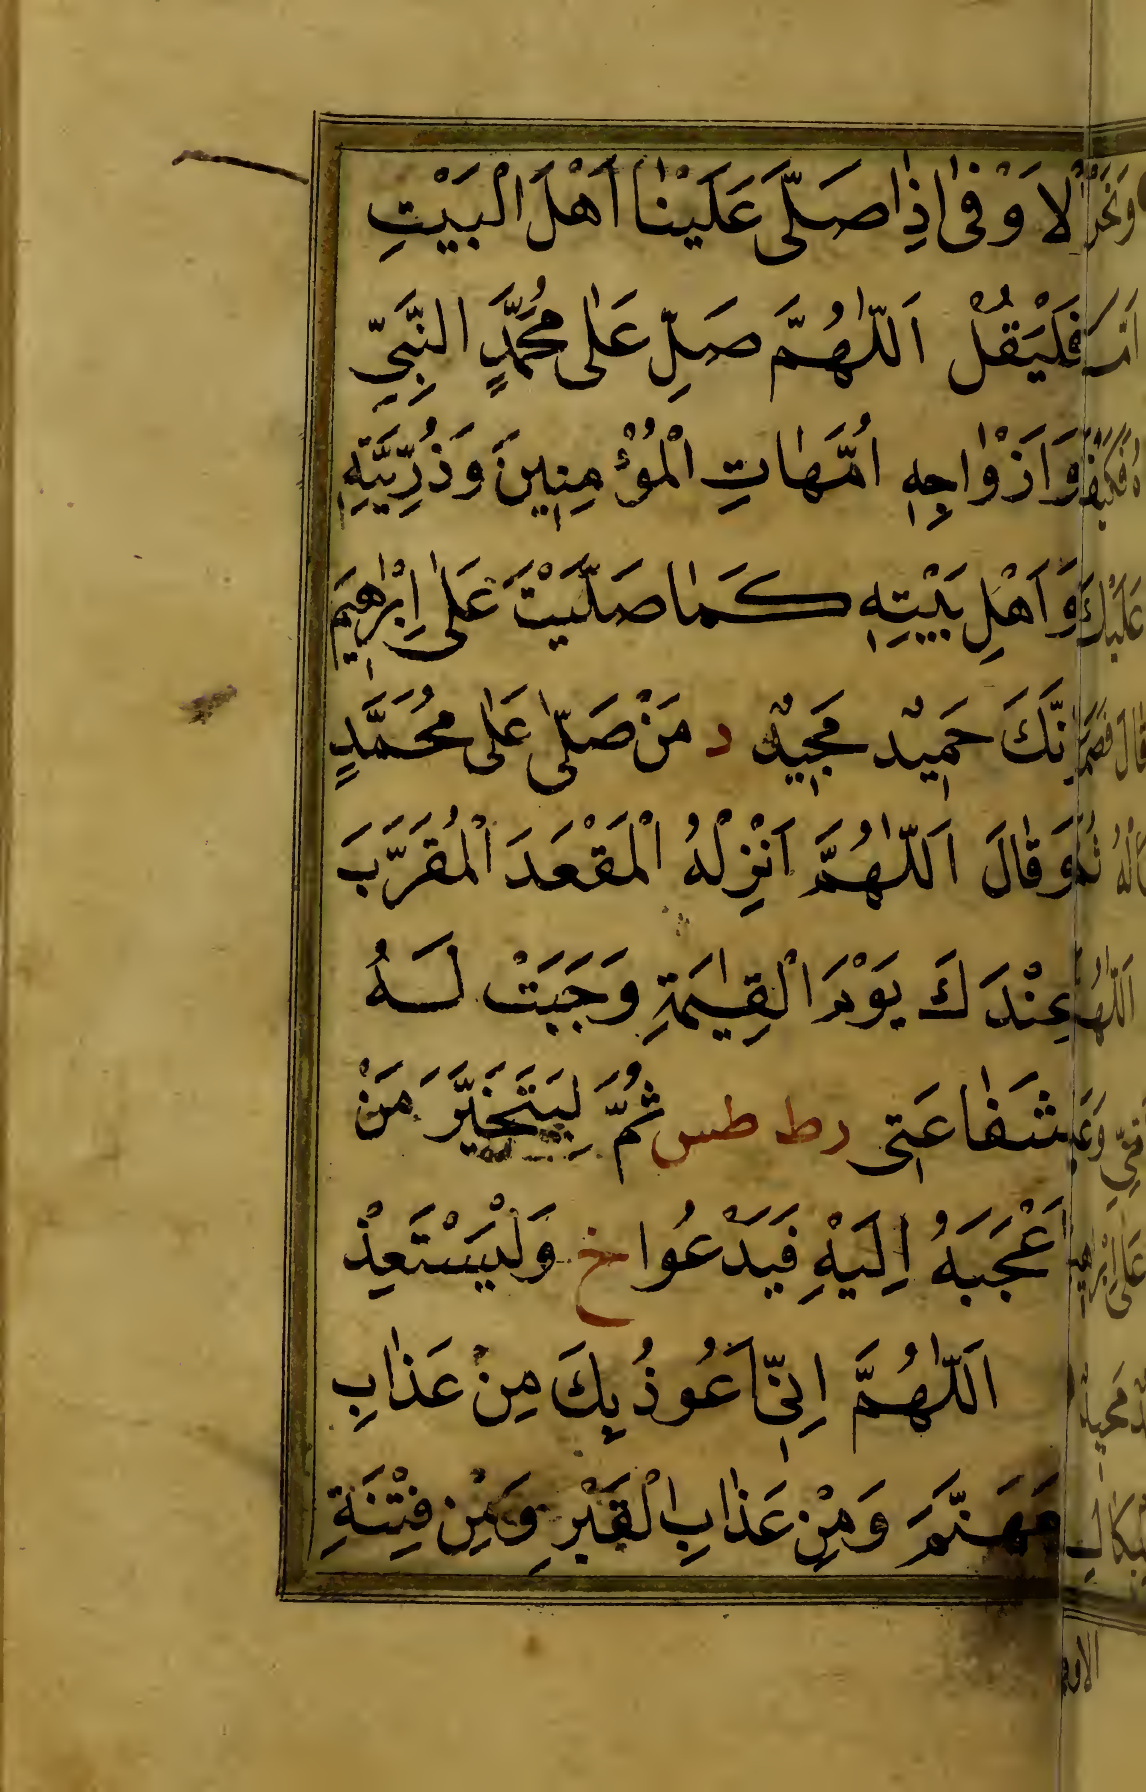 الْاَوْفٰى اِذَا صَلّٰى عَلَيْنَا اَهْلَ الْبَيْتِ
فَلْيَقُلْ اَللّٰهُمَّ صَلِّ عَلٰى مُحَمَّدٍ النَّبِيِّ
وَاَزْوَاجِهِ اُمَّهَاتِ الْمُؤْمِنِينَ وَذُرِّيَّتِهِ
وَاَهْلِ بَيْتِهِ كَمَا صَلَّيْتَ عَلٰى اِبْرٰهِيمَ
اِنَّكَ حَمِيدٌ مَجِيدٌ د مَنْ صَلّٰى عَلٰى مُحَمَّدٍ
وَقَالَ اَللّٰهُمَّ اَنْزِلْهُ الْمَقْعَدَ الْمُقَرَّبَ
عِنْدَكَ يَوْمَ الْقِيٰمَةِ وَجَبَتْ لَهُ
شَفَاعَتِى ر ط طس ثُمَّ لِيَتَخَيَّرْ مَنْ
اَعْجَبَهُ اِلَيْهِ فَيَدْعُوا خ وَلْيَسْتَعِذْ
اَللّٰهُمَّ اِنِّى اَعُوذُ بِكَ مِنْ عَذَابِ
جَهَنَّمَ وَمِنْ عَذَابِ الْقَبْرِ وَمِنْ فِتْنَةِ